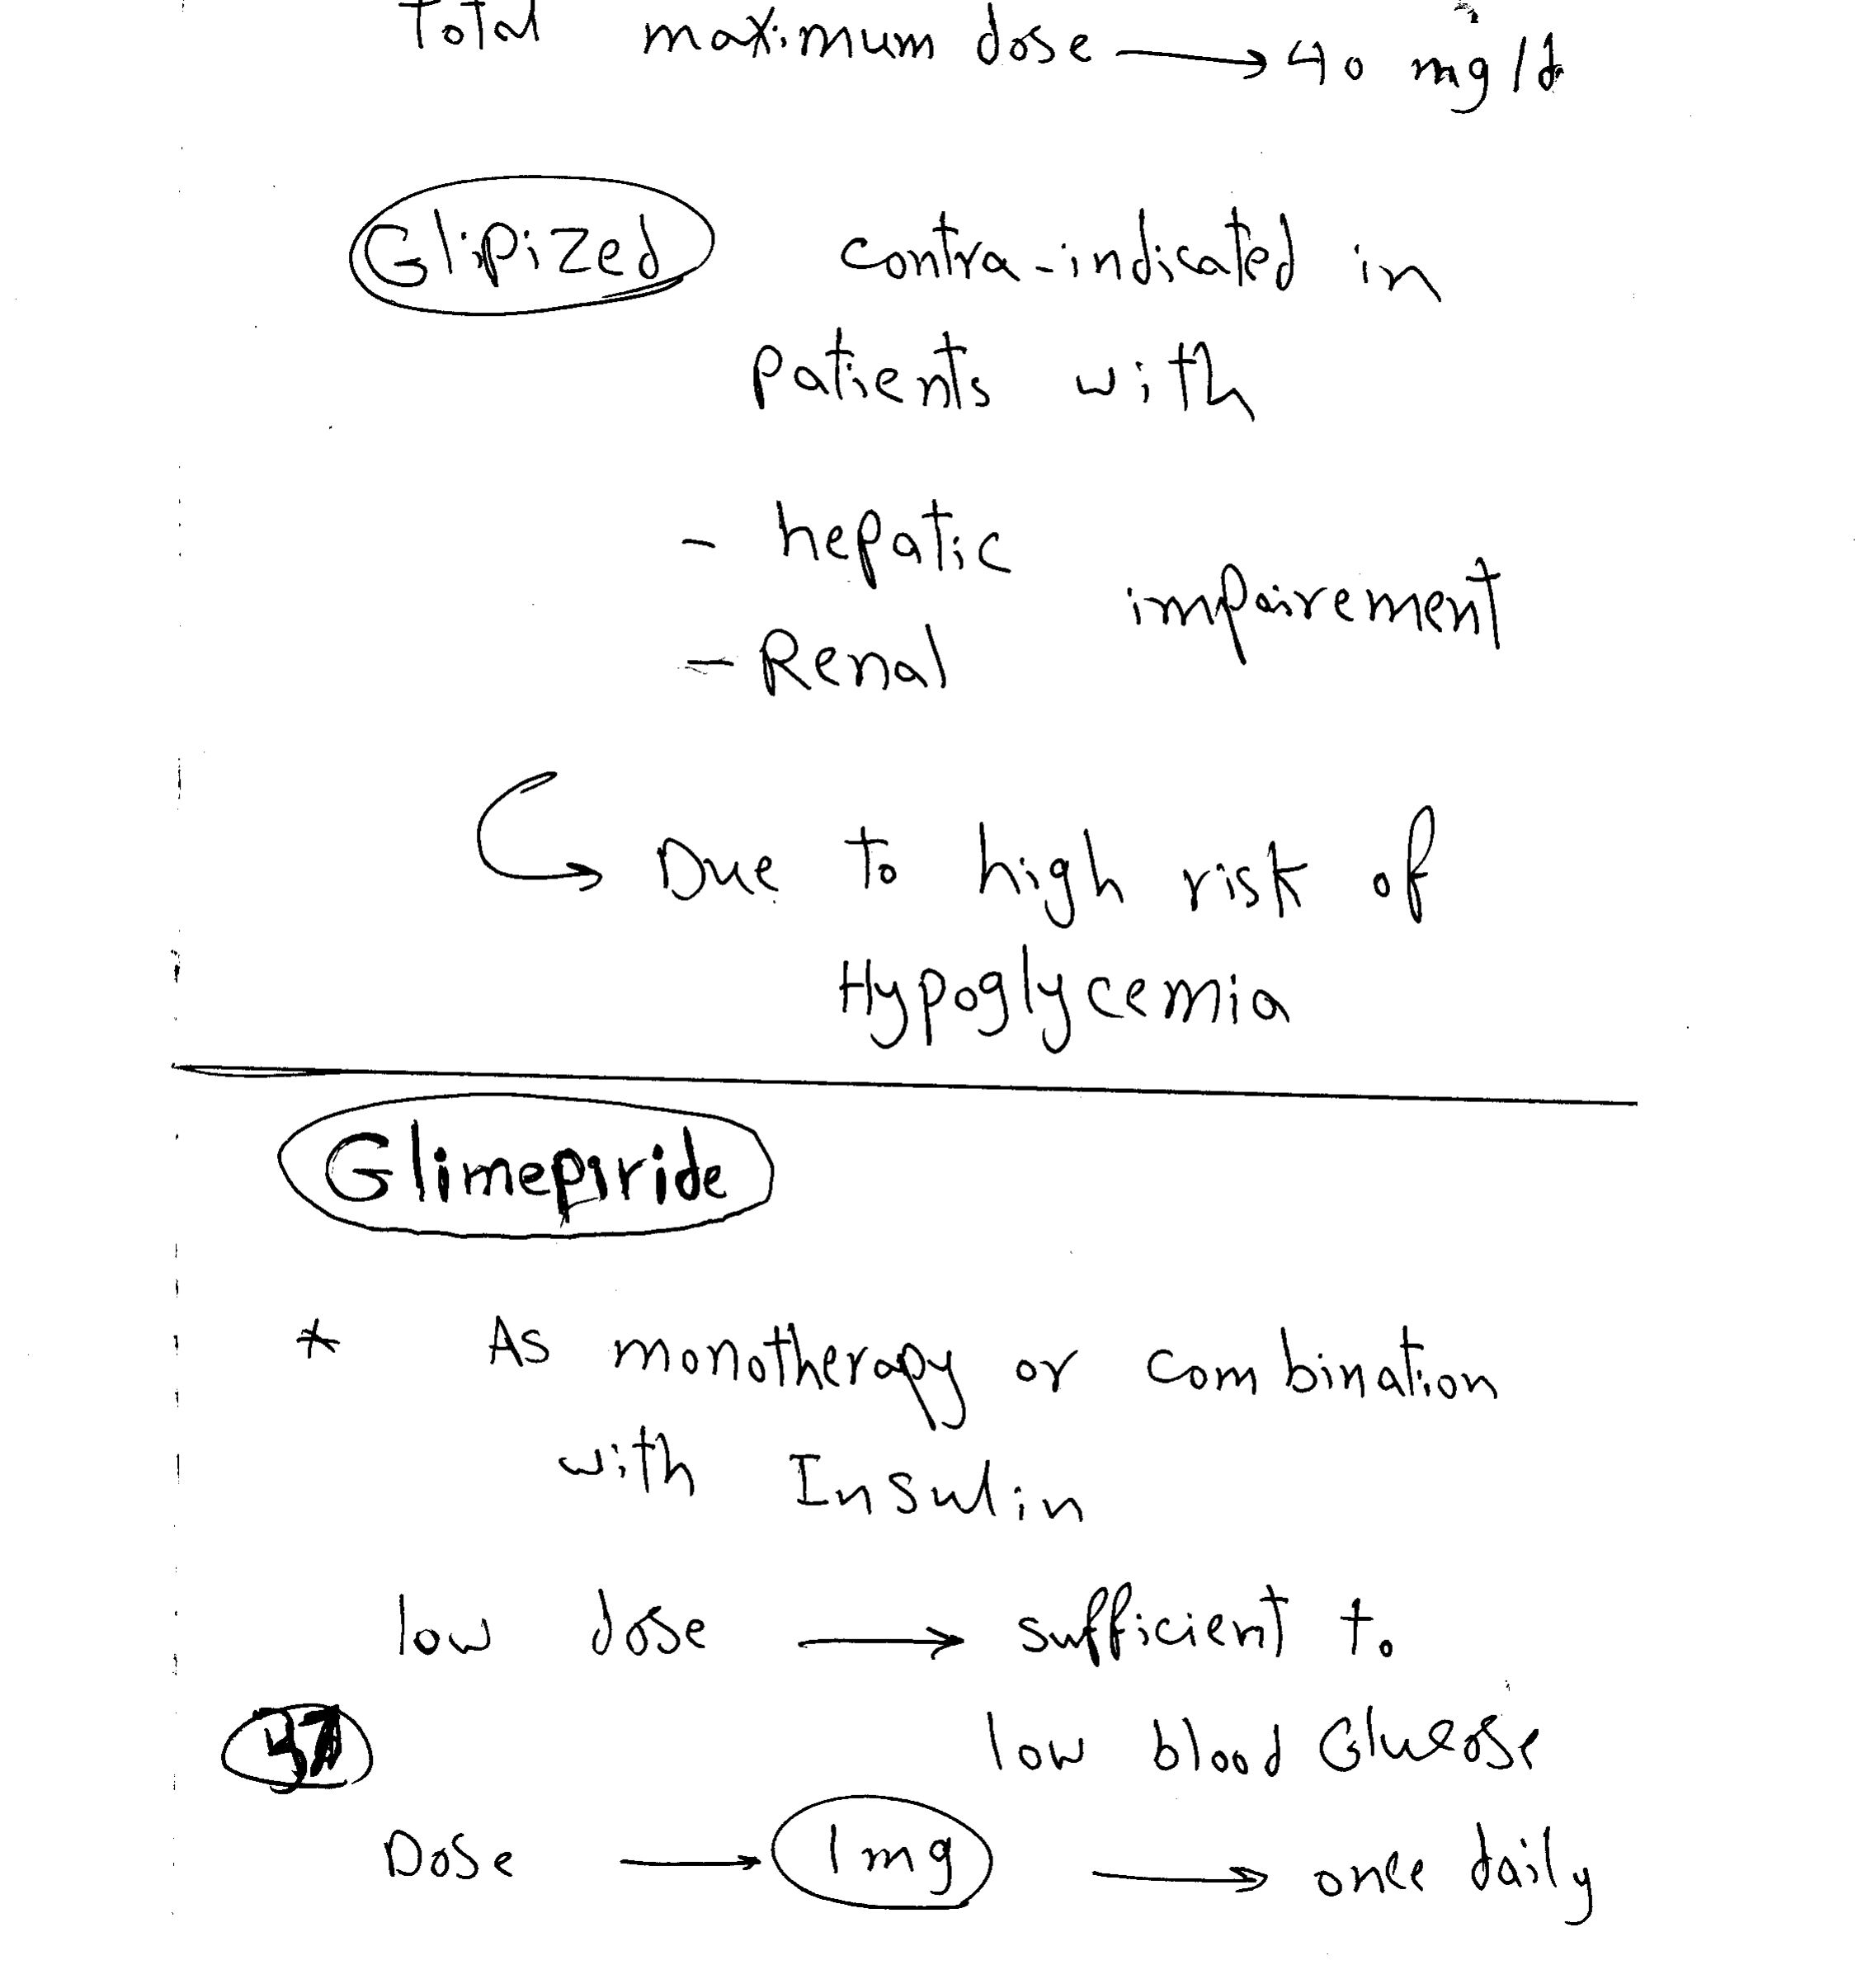 Total maximum dose → 40 mg/d
Glipized contra-indicated in
patients with
- hepatic
impairement
- Renal
Due to high risk of
Hypoglycemia
Glimepiride
* As monotherapy or combination
with Insulin
low dose → sufficient to
low blood Glucose
37
Dose → 1mg → once daily